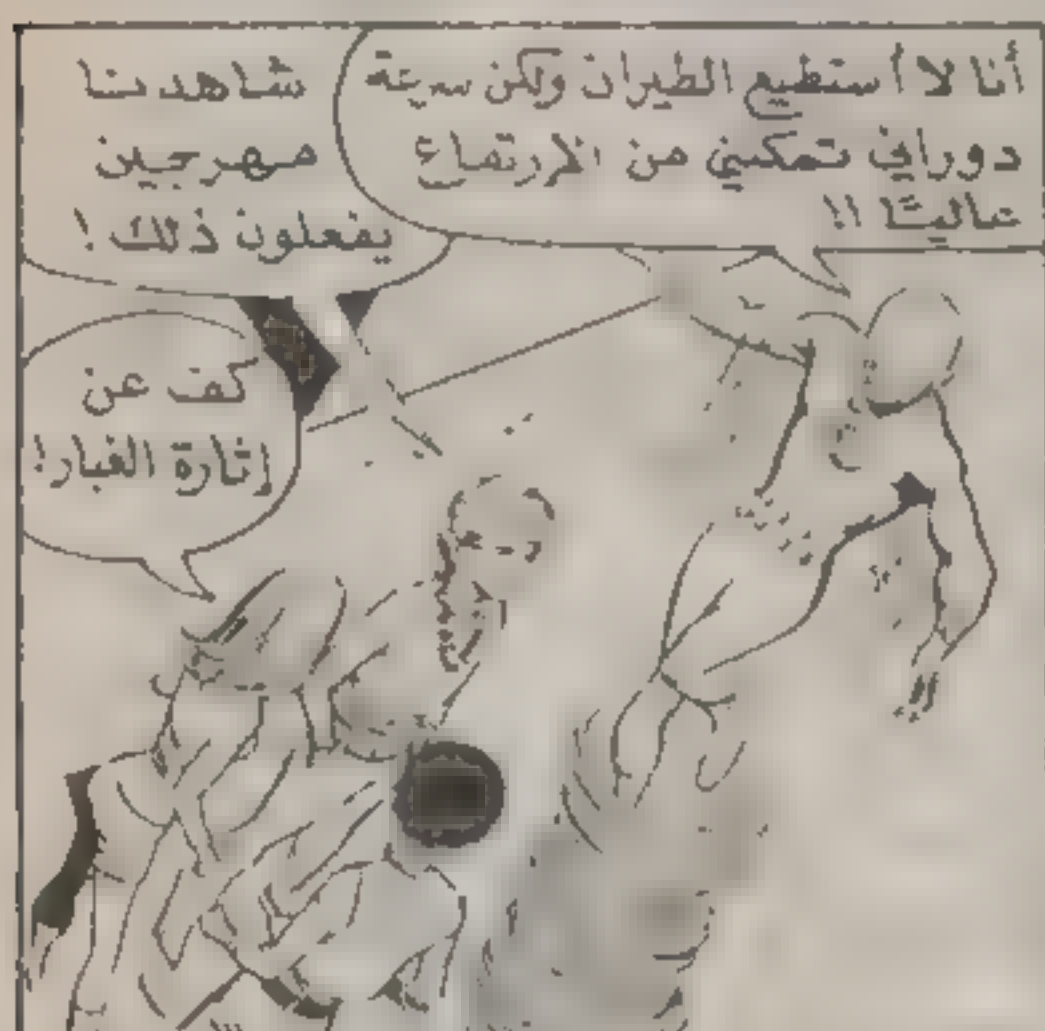 أنا لا أستطيع الطيران ولكن سرعة
دوراني تمكنني من الارتفاع
عاليًا !!
شاهدنا
مهرجين
يفعلون ذلك !
كف عن
إثارة الغبار!